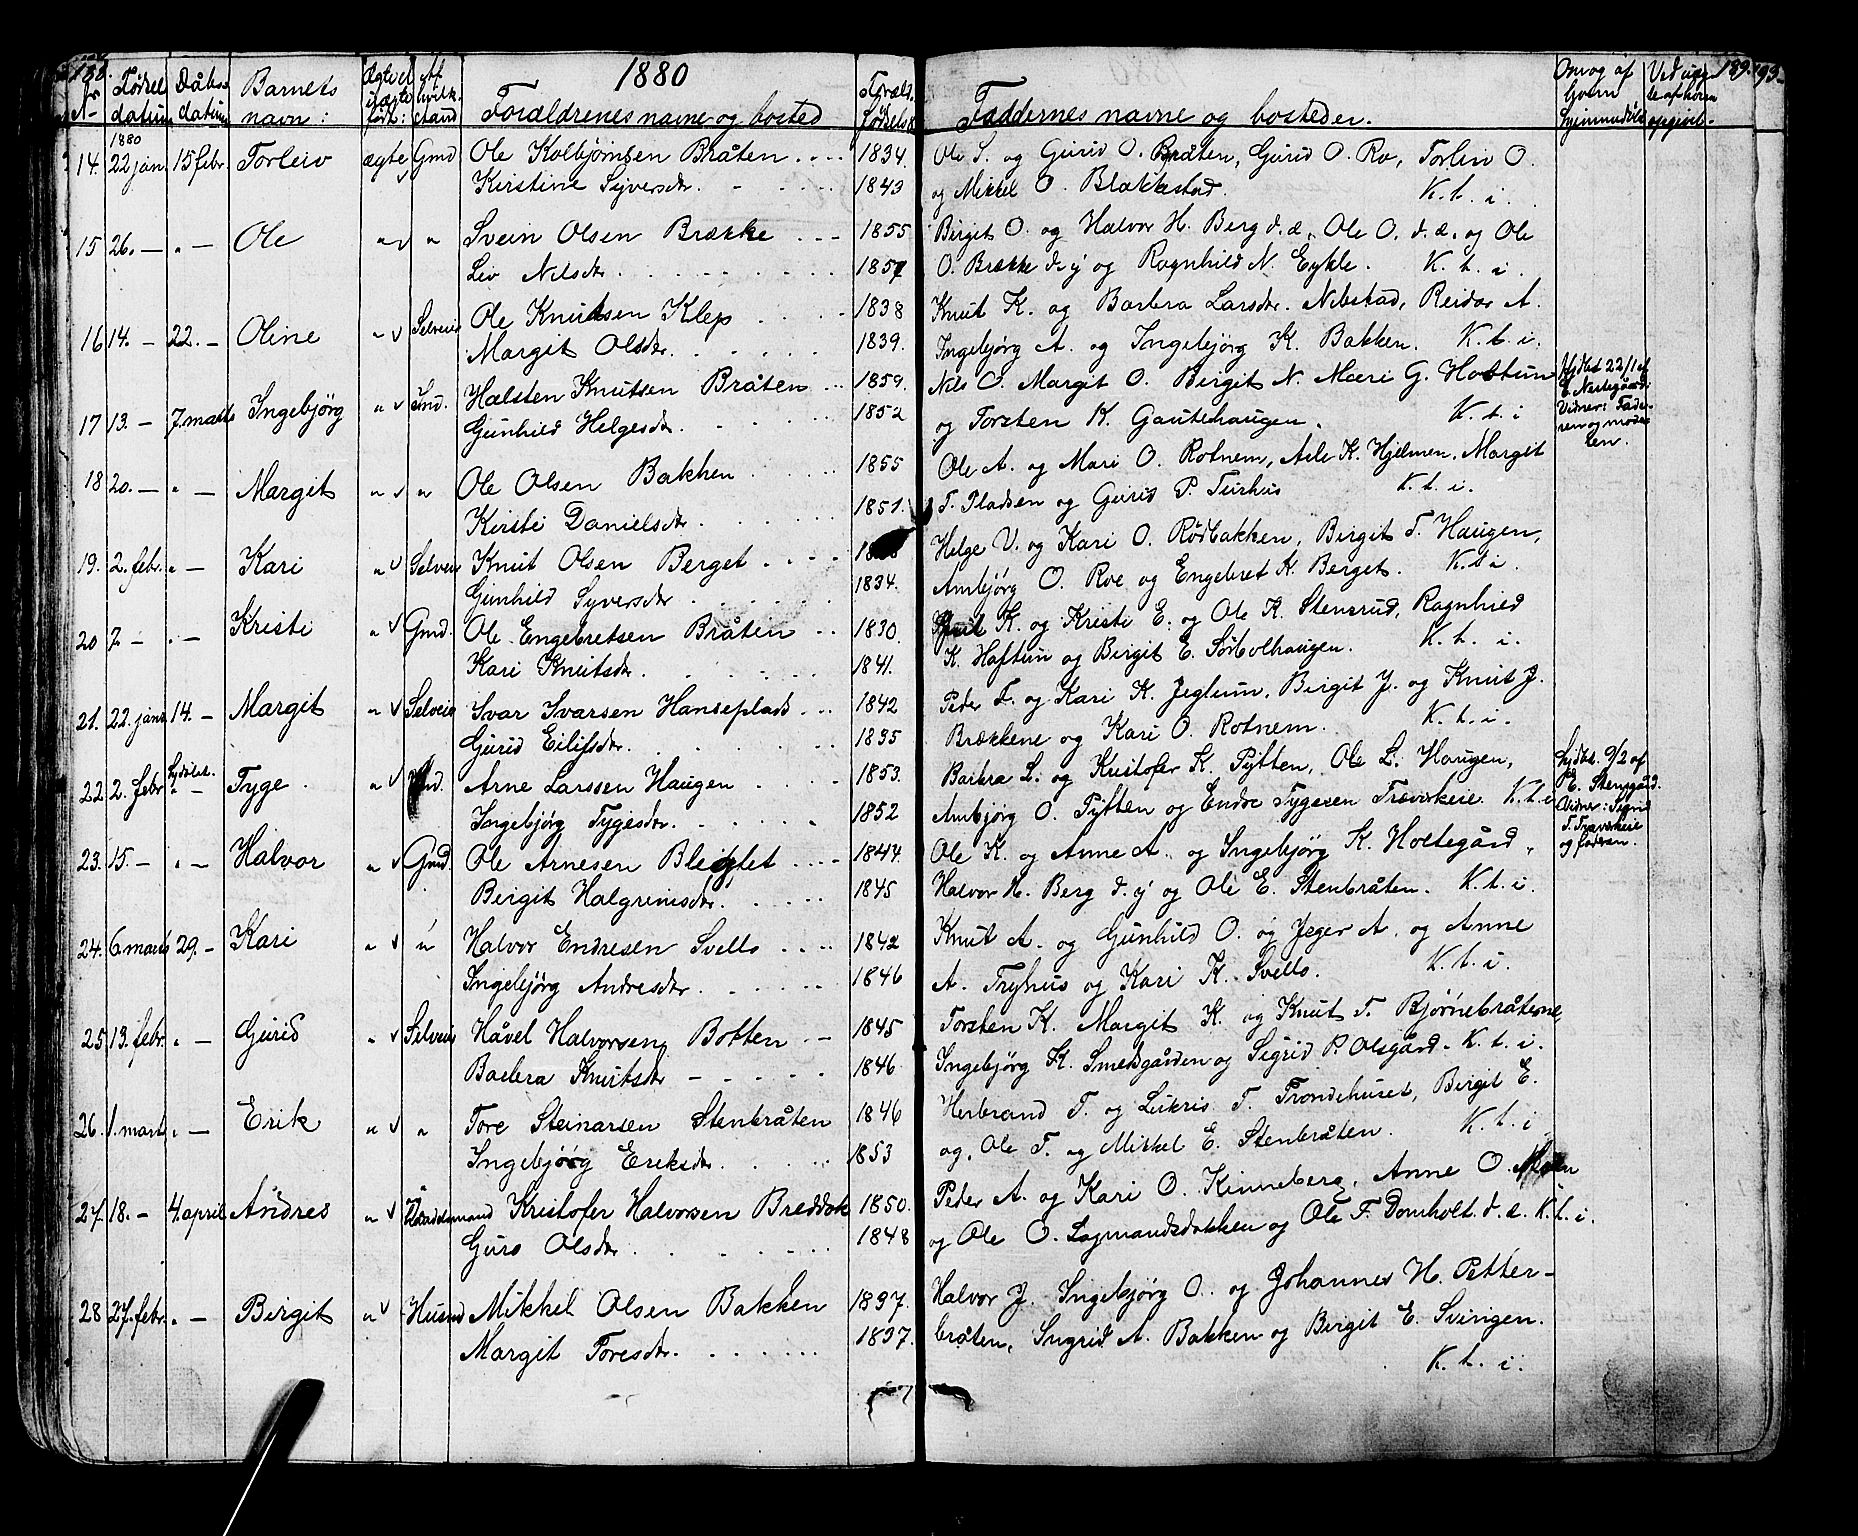 188.
1880
189. 193.
Nr
Fødsel datum
Dåbs datum
Barnets navn:
Ægte el uægte født:
Af hvilk. stand
Forældrenes navne og bosted
Foræld. fødsels
Faddernes navne og bosteder.
1880
14. 22 jan. 15 febr. Torleiv ægte Gmd Ole Kolbjørnsen Bråten 1834. Ole S. og Gurid O. Bråten, Gurid O. Ro, Torlin O.
Kirstine Syversdr. 1843 og Mikkel O. Blakkestad. K. t. i.
15 26. — " — Ole " " Svein Olsen Brække 1855 Birgit O. og Halvor H. Berg d. æ. Ole O. d. æ. og Ole
Liv Nilsdr. 1857 O. Brække d. y og Ragnhild N. Eykle. K. t. i.
16 14. — 22. — Oline " Selveier Ole Knutsen Klep 1838 Knut K. og Barbra Larsdr. Nibstad, Reidar A.
Margit Olsdr. 1839. Ingebjørg A. og Ingebjörg K. Bakken. K. t. i.
17 13. — 7. marts Ingebjørg " Ind. Halsten Knutsen Bråten 1859. Nils O. Margit O. Birgit N. Mari G. Haftun
Gunhild Helgesdr. 1852 og Torsten K. Gautehaugen. K. t. i
Hjdbt 22/1 af E. Nestegård. Vidner: Faderen og moderen.
18 20. — " — Margit " " Ole Olsen Bakken 1855 Ole A. og Mari O. Rotnem, Asle K. Hjelmen, Margit
Kirsti Danielsdr. 1851. T. Pladsen og Gurid P. Turhus K. t. i.
19. 2. febr. " — Kari " Selveier Knut Olsen Berget Helge V. og Kari O. Rødbakken, Birgit T. Haugen,
Gunhild Syversdr. 1834. Ambjörg O. Roe og Engebret K. Berget. K. t. i.
20 7 — " — Kristi " Gmd. Ole Engebretsen Bråten 1830. K. og Kristi E. og Ole K. Stensrud, Ragnhild
Kari Knutsdr. 1841. K. Haftun og Birgit E. Sørbølhaugen. K. t. i.
21. 22. janr 14. — Margit " Selveier Ivar Ivarsen Hanseplads 1842 Peder T. og Kari K. Jeglum, Birgit J. og Knut J.
Gurid Eilifsdr. 1835 Brækkene og Kari O. Rotnem. K. t. i.
22 2. febr " — Tyge " Ind. Arne Larssen Haugen 1853. Barbra L. og Kristofer K. Pytten, Ole L. Haugen,
Ingebjörg Tygesdr. 1852 Ambjörg O. Pytten og Endre Tygesen Traverkeie. K. t. i
Hjdbt. 9/2 af E. Stensgård. Vidner: Sigrid T. Traverkeie og faderen.
23. 15. — " — Halvor " Gmd. Ole Arnesen Bleiglet 1844. Ole K. og Anne A. og Ingebjörg K. Holtegård,
Birgit Halgrimsdr. 1845 Halvor H. Berg d. y og Ole E. Stenbråten. K. t. i.
24. 6. marts 29. — Kari " " Halvor Endresen Svello 1842 Knut A. og Gunhild O. og Jeger A. og Anne
Ingebjörg Andresdr. 1846 A. Tryhus og Kari K. Svello. K. t. i.
25 13. febr. " — Gurid " Selveier Håvel Halvorsen Botten 1845 Torsten K. Margit K. og Knut T. Bjørnebråtene,
Barbra Knutsdr 1846 Ingebjörg K. Smedsgården og Sigrid P. Olsgård. K. t. i.
26. 1. mart " — Erik " " Tore Steinarsen Stenbråten 1846 Herbrand T. og Lukris T. Trondehuset, Birgit E.
Ingebjørg Eriksdr. 1853 og Ole T. og Mikkel E. Stenbråten. K. t. i.
27. 18. — 4. april Andres " Kristofer Halvorsen Breddok 1850. Peder A. og Kari O. Kinneberg, Anne O.
Guro Olsdr. 1848 og Ole O. Lagmandsdokken og Ole F. Domholt. d. e. K. t. i.
28 27. febr. " — Birgit " Husmd Mikkel Olsen Bakken 1837. Halvor J. Ingebjörg O. og Johannes H. Petter-
Margit Toresdr. 1837. bråten, Ingrid A. Bakken og Birgit E. Svingen.
K. t. i.